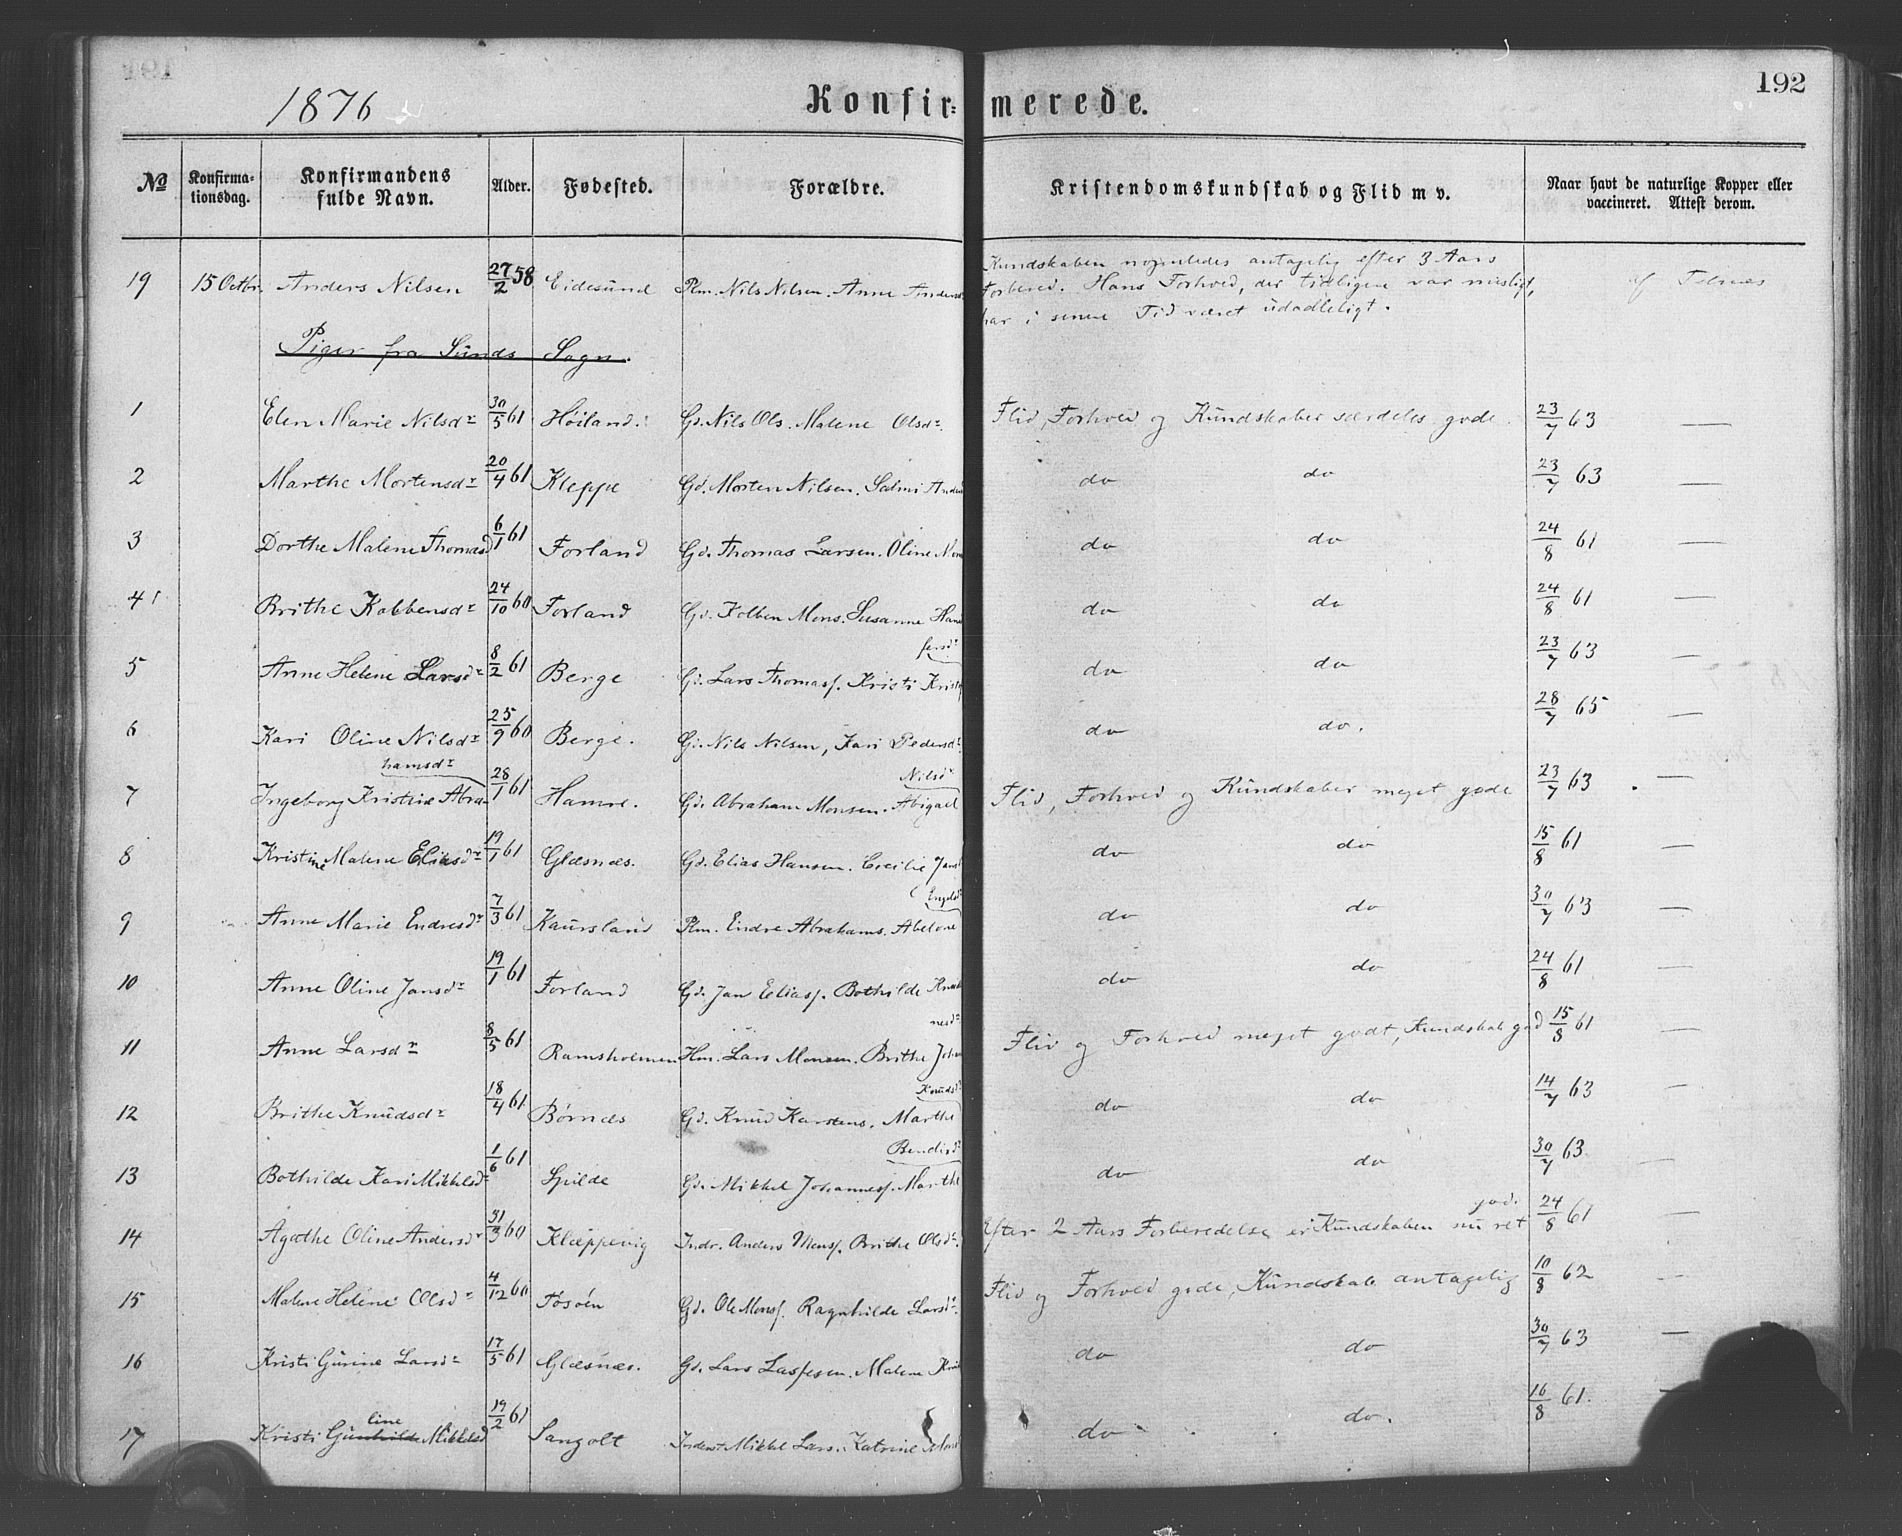 1876 Konfirmerede. 192
№ Konfirmationsdag. Konfirmandens fulde Navn. Alder. Fødested. Forældre. Kristendomskundskab og Flid m v. Naar havt de naturlige Kopper eller vaccineret. Attest derom.
19 15 Octbr. Anders Nilsen 27/2 58 Eidesund Plm. Nils Nilsen. Anne Andersd Kundskaben nogenledes antagelig efter 3 Aars Forbered. Hans Forhold, der tidligere var misligt, har i senere Tid været udadleligt. af Telnes
Piger fra Sunds Sogn.
1 Elen Marie Nilsdr 30/5 61 Høiland. Gd. Nils Ols. Malene Olsdr. Flid, Forhold og Kundskaber særdeles gode. 23/7 63 —
2 Marthe Mortensdr 20/4 61 Kleppe Gd. Morten Nilsen. Salmi Anders do do 23/7 63 —
3 Dorthe Malene Thomasd 6/1 61 Forland Gd. Thomas Larsen. Oline Mon do do 24/8 61 —
4 Brithe Kolbensdr 24/10 60 Forland Gd. Kolben Mons. Susanne Hans do do 24/8 61 —
5 Anne Helene Larsdr 8/2 61 Berge Gd. Lars Thomass. Kristi Kristofersdr do do 23/7 63 —
6 Kari Oline Nilsdr 25/9 60 Berge. Gd. Nils Nilsen, Kari Pedersdr. do do. 28/7 65 —
7 Ingeborg Kristine Abrahamsdr 28/1 61 Hamre. Gd. Abraham Monsen. Abigael Nilsdr Flid, Forhold og Kundskaber meget gode 23/7 63 —
8 Kristine Malene Eliasdr 19/1 61 Glæsnæs. Gd. Elias Hansen. Cecilie Jans do do 15/8 61 —
9 Anne Marie Endresdr 7/3 61 Kaursland Plm. Endre Abrahams. Abelone Engelsdr do do 30/7 63 —
10 Anne Oline Jansdr 19/1 61 Forland Gd. Jan Eliass. Bothilde Knud do do 24/8 61 —
11 Anne Larsdr 8/5 61 Ramsholmen Hm. Lars Monsen. Brithe Johannesdr Flid og Forhold meget godt, Kundskab god 15/8 61 —
12 Brithe Knudsdr 18/4 61 Børnæs Gd. Knud Karstens. Marthe Knudsd do do 14/7 63 —
13 Bothilde Kari Mikkelsdr 1/6 61 Spilde Gd. Mikkel Johanness. Marthe Bendisdr do do 30/7 63 —
14 Agathe Oline Andersdr 31/3 60 Klæppevig Indr. Anders Mons. Brithe Olsdr. Efter 2 Aars Forberedelse er Kundskaben nu ret god. 24/8 61 —
15 Malene Helene Olsdr 4/12 60 Tosøen Gd. Ole Mons. Ragnhilde Larsdr. Flid og Forhold gode, Kundskab antagelig 10/8 62 —
16 Kristi Gurine Larsdr 17/5 61 Glæsnæs. Gd. Lars Lassesen. Malene do do 30/7 63 —
17 Kristi Gunhilde line Mikkelsd 19/2 61 Sangolt Inderst Mikkel Lars. Katrine Mons do do. 16/8 61. —